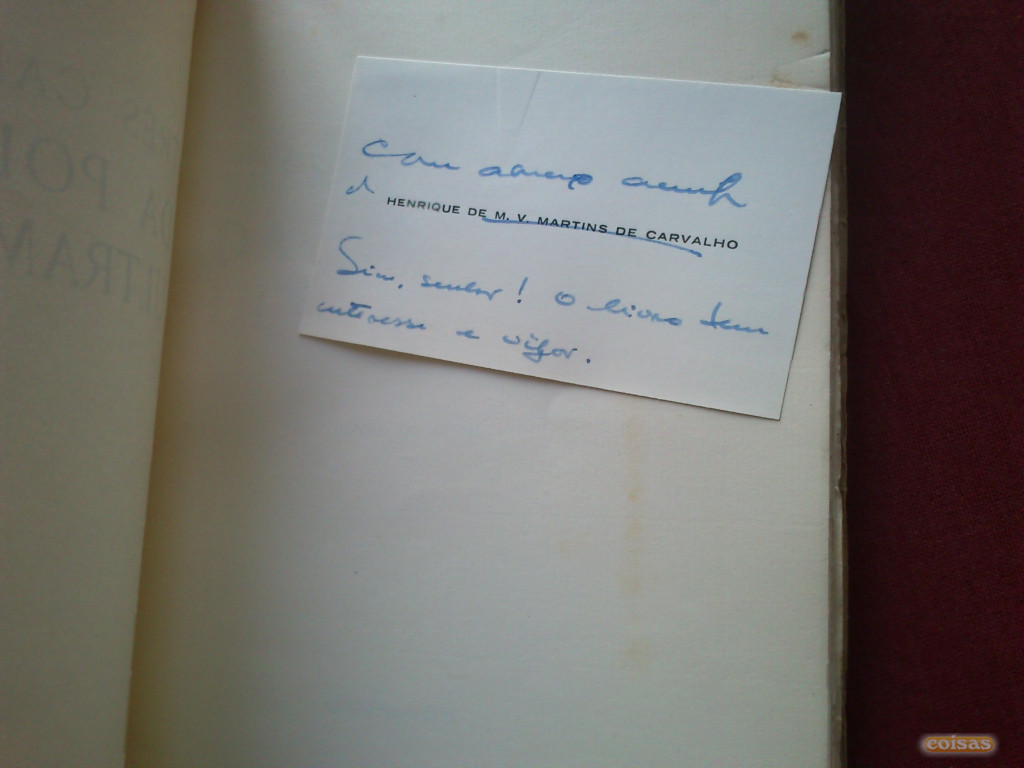 Com abraço amigo
d
HENRIQUE DE M. V. MARTINS DE CARVALHO
Sim, senhor! O livro tem
interesse e vigor.
coisas